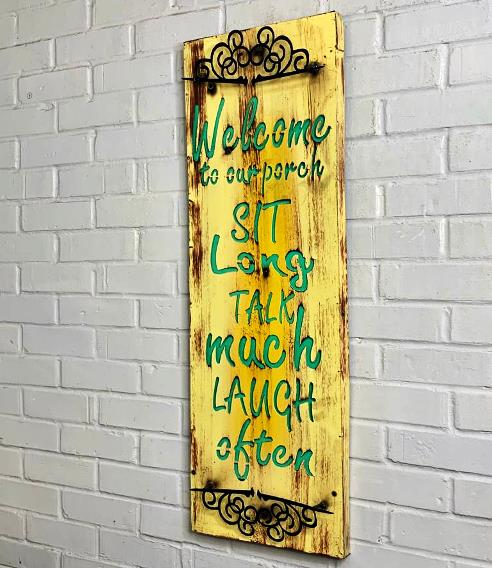 Welcome
to our porch
SIT
Long
TALK
much
LAUGH
often